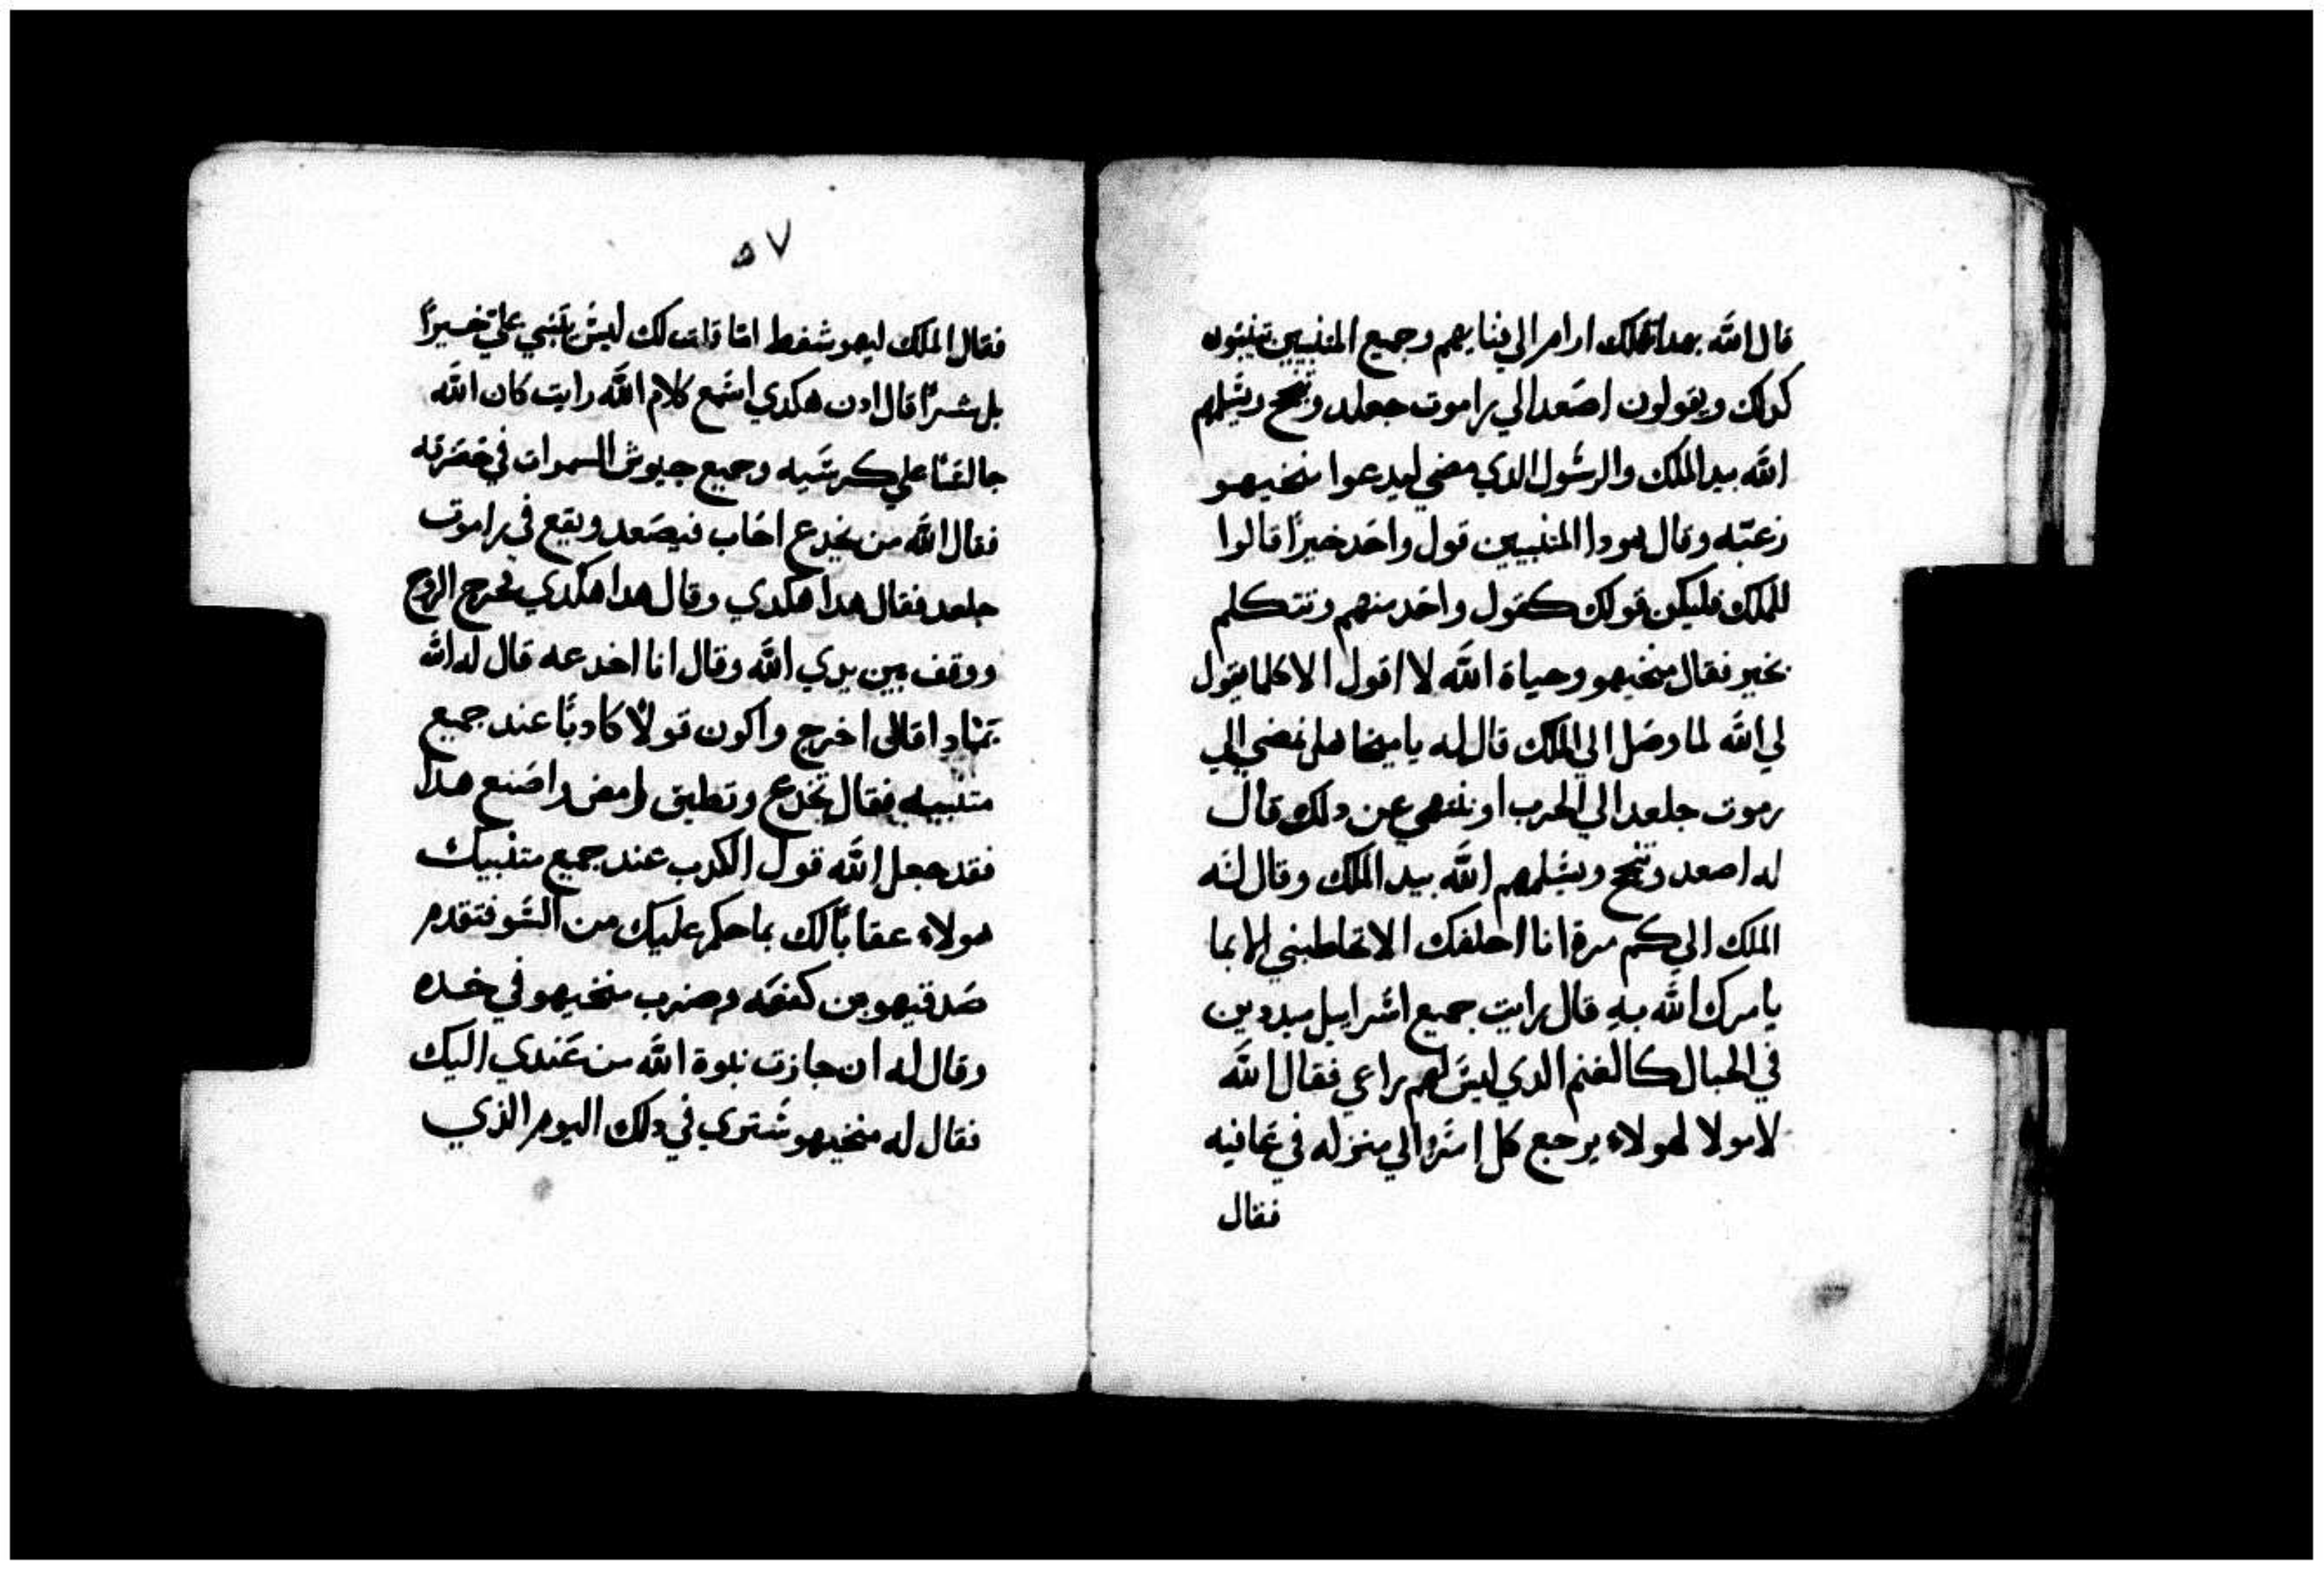 قال الله بهدا تهلك ارام الي فنايهم وجميع المنبيين تينبون
كدلك ويقولون اصعد الي راموت جعلد وتنجح ويسلمهم
الله بيد الملك والرسول الدي مضي ليدعوا منخيهو
زعته وقال هودا المنبيين قول واحد خيرا قالوا
للملك فليكن قولك كقول واحد منهم وتتكلم
بخير فقال منخيهو وحياة الله لا اقول الا كلما يقول
لي الله لما وصل الي الملك قال له يا ميخا هل نمضي الي
رموت جلعد الي الحرب او ننتهي عن دلك قال
له اصعد وتنجح ويسلمهم الله بيد الملك وقال له
الملك الي كم مرة انا احلفك الا تخاطبني الا بما
يامرك الله به قال رايت جميع اسراييل مبددين
في الجبال كالغنم الدي ليس لهم راعي فقال الله
لا مولا لهولاء يرجع كل امرؤ الي منزله في عافيه
فقال
٥٧
فقال الملك ليهوشفط اما قلت لك ليس يتنبي علي خيرا
بل شرا قال ادن هكدي اسمع كلام الله رايت كان الله
جالسا علي كرسيه وجميع جيوش السموات في حضرته
فقال الله من يخدع احاب فيصعد ويقع في راموت
جلعد فقال هدا هكدي وقال هدا هكدي فخرج الروح
ووقف بين يدي الله وقال انا اخدعه قال له الله
بمادا قال اخرج واكون قولا كادبا عند جميع
متنبيه فقال تخدع وتطيق امض واصنع هدا
فقد جعل الله قول الكدب عند جميع متنبيك
هولاء عقابا لك بما حكم عليك من السو فتقدم
صدقيهو بن كنعنه وضرب منخيهو في خده
وقال له ان جازت نبوة الله من عندي اليك
فقال له منخيهو ستري في دلك اليوم الذي